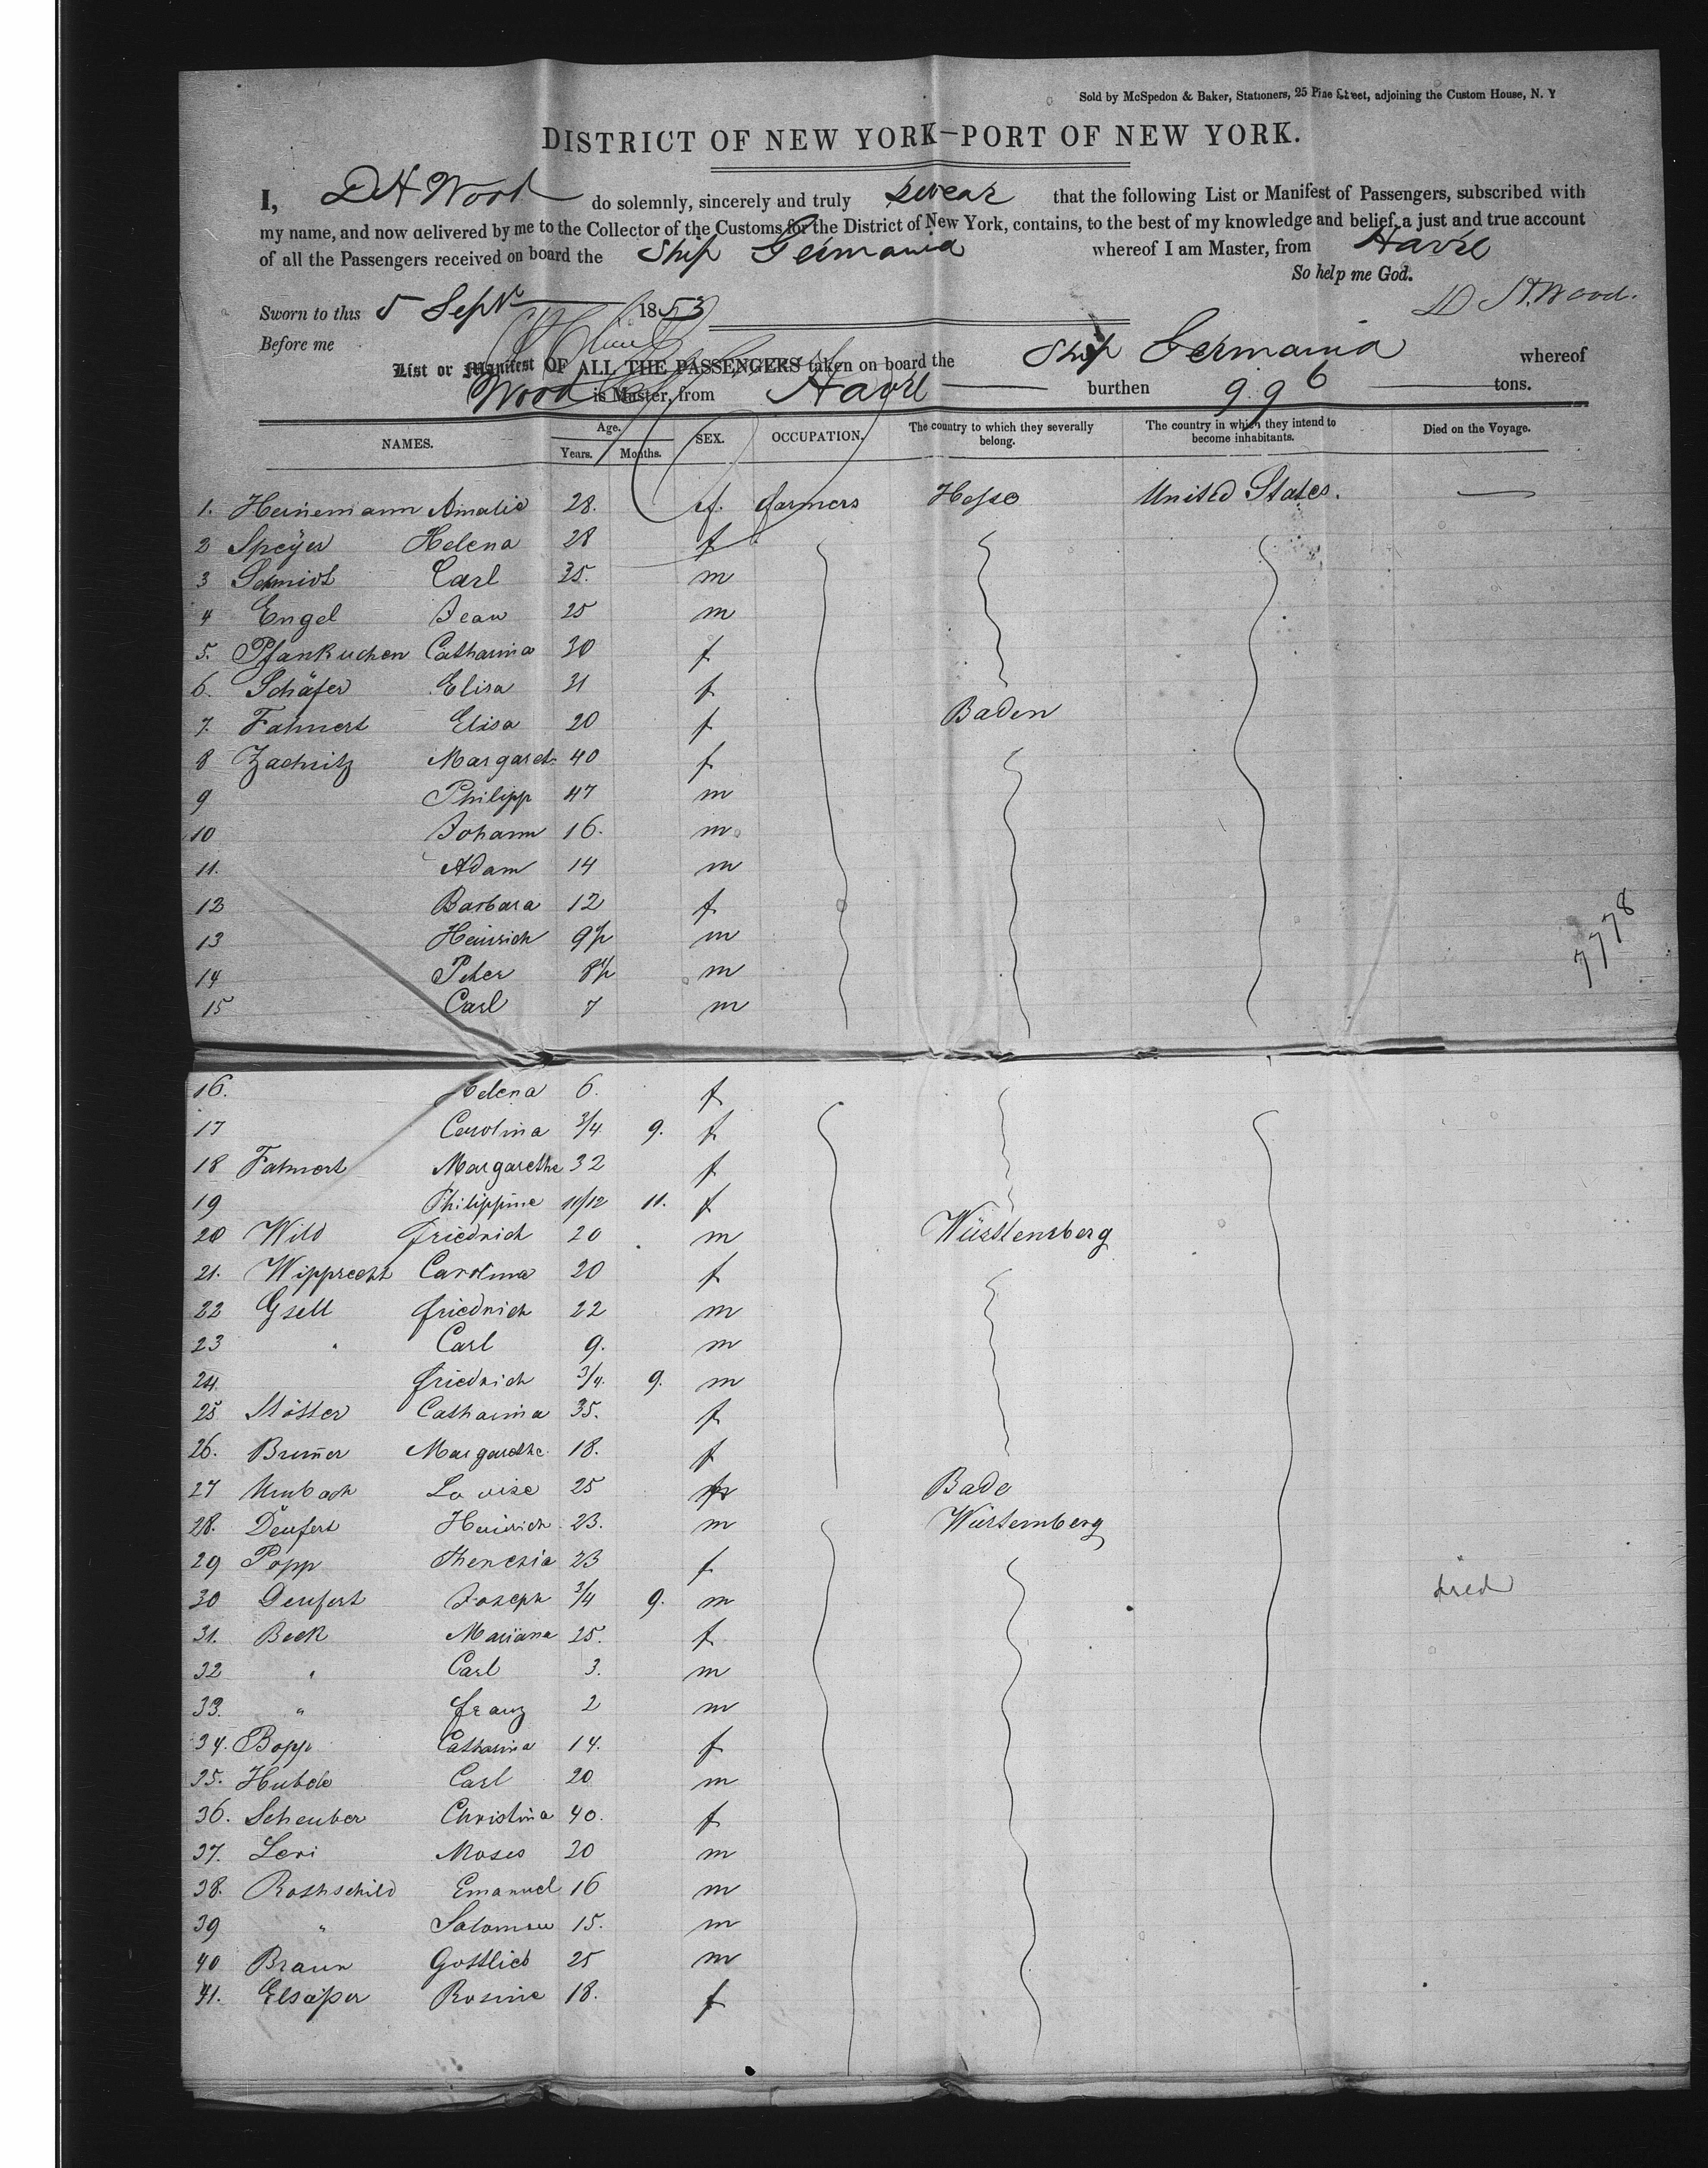 Sold by McSpedon & Baker, Stationers, 25 Pine Street, adjoining the Custom House, N. Y
DISTRICT OF NEW YORK—PORT OF NEW YORK.
I, D H Wood do solemnly, sincerely and truly swear that the following List or Manifest of Passengers, subscribed with
my name, and now delivered by me to the Collector of the Customs for the District of New York, contains, to the best of my knowledge and belief, a just and true account
of all the Passengers received on board the Ship Germania whereof I am Master, from Havre
So help me God.
Sworn to this 5 Sept 1853 D H. Wood.
Before me
List or Manifest OF ALL THE PASSENGERS taken on board the Ship Germania whereof
Wood is Master, from Havre burthen 996 tons.
NAMES. Age. Years. Months. SEX. OCCUPATION. The country to which they severally belong. The country in which they intend to become inhabitants. Died on the Voyage.
1. Heinemann Amalie 28. f. farmers Hesse United States. —
2 Speÿer Helena 28 f
3 Schmidt Carl 35. m
4 Engel Jean 25 m
5. Pfankuchen Catharina 30 f
6. Schäfer Elisa 31 f
7. Fahnert Elisa 20 f Baden
8 Zachritz Margareth 40 f
9 Philipp 47 m
10 Johann 16. m
11. Adam 14 m
12 Barbara 12 f
13 Heinrich 9½ m
14 Peter 8½ m
15 Carl 7 m
7778
16. Helena 6. f
17 Carolina 3/4 9. f
18 Fahnert Margarethe 32 f
19 Philippine 11/12 11. f
20 Wild friedrich 20 m Württemberg
21. Wipprecht Carolina 20 f
22 Gsell friedrich 22 m
23 " Carl 9. m
24 friedrich 3/4. 9. m
25 Catharina 35. f
26. Brum̄er Margarethe 18. f
27 Umbach Louise 25 f Bade
28. Deufert Heinrich 23. m Würtemberg
29 Popp Theresia 23 f
30 Deufert Joseph 3/4 9. m died
31. Beck Mariana 25. f
32 " Carl 3. m
33. " franz 2 m
34. Bopp Catharina 14. f
35. Carl 20 m
36. Scheuber Christina 40. f
37. Levi Moses 20 m
38. Rothschild Emanuel 16 m
39 " Salomon 15. m
40 Braun Gottlieb 25 m
41. Elsäßer Rosine 18. f